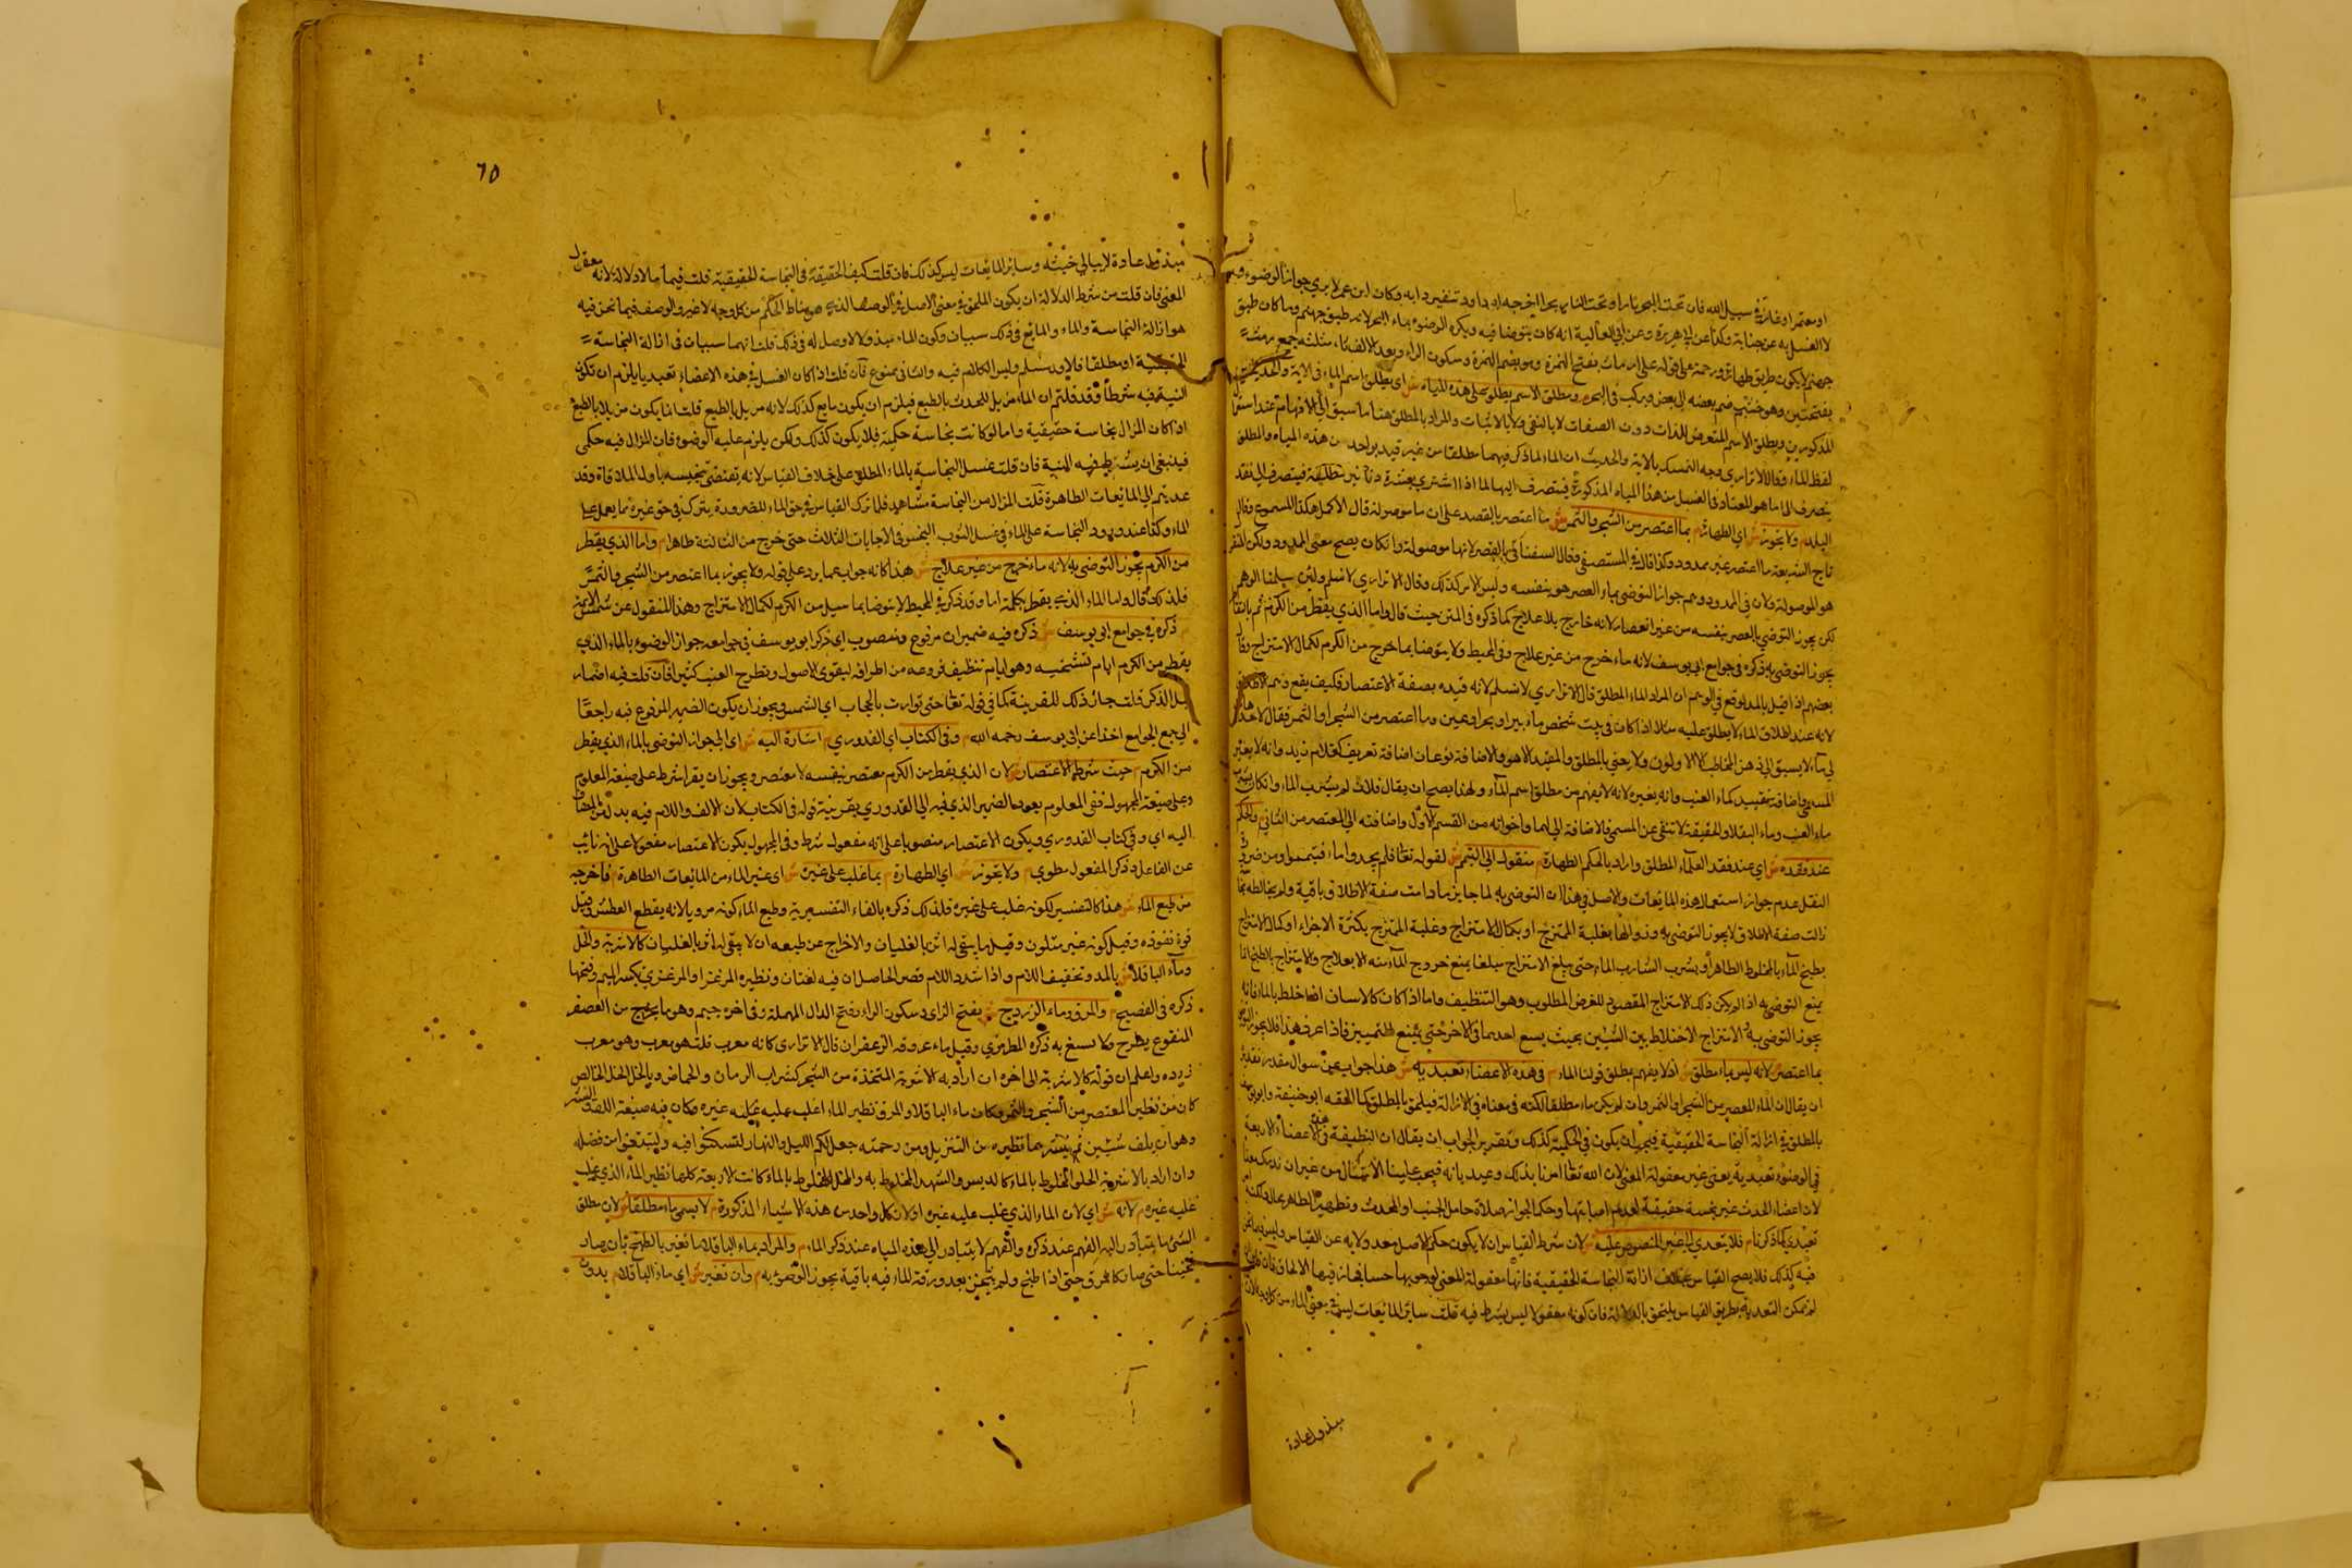 او معتمرا او غاز في سبيل الله فان تحت البحر نارا وتحت النار بحرا اخرجه ابو داود تنفير دابه وكان ابن عمر لا يري جواز الوضوء به
لا الغسل به عن جنابة وكذا عن ابي هريرة وعن ابي العالية انه كان يتوضا فيه ويكره الوضوء بماء البحر لانه طبق جهنم وما كان طبق
جهنم لا يكون طريق طهارة ورحمة
بفتحتين وهو خشب ضم بعضه الي بعض ويركب في البحر م ومطلق الاسم يطلق على هذه المياه ش اي يطلق اسم الماء في الاية والحديث
المذكورين ويطلق الاسم المتعرض للذات دون الصفات لا بالنفي ولا بالاثبات والمراد بالمطلق هنا ما سبق الي الافهام
لفظ الماء وقال الاترازي وجه التمسك بالاية والحديث ان الماء لما ذكر فيهما مطلقا من غير قيد بواحد من هذه المياه والمطلق
ينصرف الى ما هو المعتاد في الغسل من هذا المياه المذكورة فينصرف اليها لما اذا اشترى بعشرة دنانير مطلقة فينصرف الى نقد
البلد م ولا يجوز ش اي الطهارة م بما اعتصر من الشجر والثمر ش ما اعتصر بالقصر على ان ما موصولة قال الاكمل هكذا المسموع وقال
تاج الشريعة ما اعتصر غير ممدود وكذا قال في المستصفى وقال السغناقي بالقصر لانها موصولة وان كان يصح معنى الممدود ولكن
هو الموصولة ولان في الممدود وهم جواز التوضي بماء العصر هو بنفسه وليس الامر كذلك وقال الاترازي لا نسلم ولئن سلمنا الوهم
لكن يجوز التوضي بالعصر بنفسه من غير انعصار لانه خارج بلا علاج كما ذكره في المتن حيث قال واما الذي يقطر من الكرم
يجوز التوضي به ذكره في جوامع ابي يوسف لانه ماء خرج من غير علاج وفي المحيط ولا يتوضا بما خرج من الكرم لكمال الامتزاج وقال
بعضهم اذا قيل بالمد يوقع في الوهم ان المراد الماء المطلق قال الاترازي لا نسلم لانه قيده بصفة الاعتصار فكيف يقع وهم
لانه عند اطلاق الماء لا يطلق عليه مثلا اذا كان في بيت شخص ماء بير او بحر او عين وما اعتصر من الشجر او الثمر فقال
لا يسبق الى ذهن المخاطب الا الاولون ولا يعني بالمطلق والمقيد الا هو والاضافة نوعان اضافة تعريف كغلام زيد وانه لا يغير
المسمى واضافة تقييد كماء العنب وانه يغيره لانه لا يفهم من مطلق اسم الماء ولهذا يصح ان يقال فلان لم يشرب الماء وان كان شرب
ماء العنب وماء الباقلا والحقيقة لا تنفى عن المسمى فالاضافة الى الماء واخواته من القسم الاول واضافته الى المعتصر من الثاني م والحكم
عند فقده ش اي عند فقد الماء المطلق واراد بالحكم الطهارة م منقول الى التيمم ش لقوله تعالى فلم يجدوا ماء فتيمموا ومن ضرورة
النقل عدم جواز استعمال هذه المايعات والاصل في هذا ان التوضي به لما جايز ما دامت صفة الاطلاق باقية ولم يخالطه
زالت صفة الاطلاق لا يجوز التوضي به وزوالها بغلبة الممتزج او بكمال الامتزاج وغلبة الممتزج بكثرة الاجزاء او كمال الامتزاج
بطبخ الماء بالمخلوط الطاهر او بشرب الشارب الماء حتى يبلغ الامتزاج مبلغا يمنع خروج الماء منه الا بعلاج والامتزاج بالطبخ انما
يمنع التوضي به اذا لم يكن ذلك الامتزاج المقصود للغرض المطلوب وهو التنظيف واما اذا كان كالاسنان اذا خلط بالماء فانه
يجوز التوضي به الامتزاج الاختلاط بين الشيئين بحيث يسع احدهما في الاخر حتى يمتنع التمييز فاذا عرف هذا فلا يجوز التوضي
بما اعتصر لانه ليس بماء مطلق ش اذ لا يفهم بمطلق قولنا الماء م في هذه الاعضاء تعبدية ش هذا جواب عن سوال مقدر تقديره
ان يقال ان الماء المعتصر من الشجر او الثمر وان لم يكن ماء مطلقا لكنه في معناه في الازالة فيلحق بالمطلق كما الحقه ابو حنيفة وابو يوسف
بالمطلق في ازالة النجاسة الحقيقية فيجب ان يكون في الحكمية كذلك وتقرير الجواب ان يقال ان الوظيفة في هذه الاعضاء الاربعة
في الوضوء تعبدية يعني غير معقولة المعنى لان الله تعالى امرنا بذلك وعبد بانه فيجب علينا الامتثال من غير ان ندرك معناه
لان اعضاء المحدث غير نجسة حقيقية لعدم اصابتها وحكما لجواز صلاة حامل الجنب او المحدث وتطهير الطاهر محال ولكنه
تعبدي كما ذكرنا م فلا يتعدى الى غير المنصوص عليه ش لان شرط القياس ان لا يكون حكم الاصل معدولا به عن القياس وليس ما نحن
فيه كذلك فلا يصح القياس بخلاف ازالة النجاسة الحقيقية فانها معقولة المعنى لوجوبها حسا فجاز فيها الالحاق فان قلت
لم يمكن التعدية بطريق القياس يلحق بالدلالة فان كونه معقولا ليس بشرط فيه قلت سائر المائعات ليس في معنى الماء من كل وجه لان
مبذول عادة
٦٥
مبذول عادة لا يبالي خبثه وسائر المائعات ليس كذلك فان قلت كيف الحقيقة في النجاسة الحقيقية قلت فيها بالاولا لانه معقول
المعنى فان قلت من شرط الدلالة ان يكون الملحق في معنى الاصل في الوصف الذي هو مناط الحكم من كل وجه لا غير والوصف فيما نحن فيه
هو ازالة النجاسة والماء والمايع في ذلك سببان وكون الماء مبذولا لا وصل له في ذلك قلت انهما سببان في ازالة النجاسة
الحقيقية او مطلقا فالاول مسلم وليس الكلام فيه والثاني ممنوع فان قلت اذا كان الغسل في هذه الاعضاء تعبديا يلزم ان تكون
النية فيه شرطا وقد قلتم ان الماء مزيل للحدث بالطبع فيلزم ان يكون مايع كذلك لانه مزيل بالطبع قلت انما يكون مزيلا بالطبع
اذا كان المزال نجاسة حقيقية واما لو كانت نجاسة حكمية فلا يكون كذلك ولكن يلزم عليه الوضوء فان المزال فيه حكمي
فينبغي ان يشترط فيه النية فان قلت غسل النجاسة بالماء المطلق على خلاف القياس لانه يقتضي تنجيسه باول الملاقاة وقد
عديتم الى المائعات الطاهرة قلت المزال من النجاسة مشاهد فلما ترك القياس في حق الماء للضرورة يترك في حق غيره بما يعمل عمل
الماء وكذا عند ورود النجاسة على الماء في غسل الثوب النجس في الاجانات الثلاث حتى خرج من الثالثة طاهرا م واما الذي يقطر
من الكرم يجوز التوضي به لانه ماء خرج من غير علاج ش هذا كانه جواب عما يرد على قوله ولا يجوز بما اعتصر من الشجر والثمر
فلذلك قال واما الماء الذي يقطر وقد ذكر في المحيط لا يتوضا بما سيل من الكرم لكمال الامتزاج وهذا المنقول عن شمس الايمة
م ذكره في جوامع ابي يوسف ش ذكره فيه ضميران مرفوع ومنصوب اي ذكر ابو يوسف في جوامعه جواز الوضوء بالماء الذي
يقطر من الكرم ايام تشخيسه وهو ايام تنظيف فروعه من اطرافه ليقوى الاصول ويطرح العنب كثيرا فان قلت فيه اضمار
قبل الذكر قلت جائز ذلك للقرينة كما في قوله تعالى حتى توارت بالحجاب اي الشمس ويجوز ان يكون الضمير المرفوع فيه راجعا
الى جمع الجوامع اخذا عن ابي يوسف رحمه الله م وفي الكتاب اي القدوري م اشارة اليه ش اي الى جواز التوضي بالماء الذي يقطر
من الكرم م حيث شرط الاعتصار ش لان الذي يقطر من الكرم معتصر بنفسه لا معتصر ويجوز ان يقرا شرط على صيغة المعلوم
وعلى صيغة المجهول ففي المعلوم يعود الضمير الذي فيه الى القدوري بقرينة قوله في الكتاب لان الالف واللام فيه بدل من المضاف
اليه اي وفي كتاب القدوري ويكون الاعتصار منصوبا على انه مفعول شرط وفي المجهول يكون الاعتصار مفعولا على انه نائب
عن الفاعل وذكر المفعول مطوي م ولا يجوز ش اي الطهارة م بما غلب على غيره ش اي غير الماء من المائعات الطاهرة م فاخرجه
من طبع الماء ش هذا كالتفسير لكونه غلب على غيره فلذلك ذكره بالفاء التفسيرية وطبع الماء كونه مرويا لانه يقطع العطش وقيل
قوة نفوذه وقيل كونه غير متلون وقيل ما يبقى له اثر بالغليان والاخراج عن طبعه ان لا يبقى له اثر بالغليان كالاشربة والخل
وماء الباقلا ش بالمد وتخفيف اللام واذا شدد اللام قصر الحاصل ان فيه لغتان ونظيره المرعزا والمرعزي بكسر الميم وفتحها
ذكره في الفصيح م والمرق وماء الزردج ش بفتح الزاي وسكون الراء وفتح الدال المهملة وفي اخره جيم وهو ما يخرج من العصفر
المنقوع يطرح ولا يصبغ به ذكره المطرزي وقيل ماء عروقه الزعفران قال الاترازي كانه معرب قلت هو معرب وهو معرب
زرده واعلم ان قوله كالاشربة الى اخره ان اراد به الاشربة المتخذة من الشجر كشراب الرمان والحماض وبالخل الخل الخالص
كان من نظير المعتصر من الشجر والثمر وكان ماء الباقلا والمرق نظير الماء اغلب عليه غيره وكان فيه صنعة اللف والنشر
وهو ان يلف شيئين ثم ينشرهما نظيره من التنزيل ومن رحمته جعل لكم الليل والنهار لتسكنوا فيه ولتبتغوا من فضله
وان اراد بالاشربة الحلو المخلوط بالماء كالدبس والشهد المخلوط به والخل المخلوط بالماء كانت الاربعة كلها نظير الماء الذي غلب
عليه غيره م لانه ش اي لان الماء الذي غلب عليه غيره او لان كل واحد من هذه الاشياء المذكورة م لا يسمى ماء مطلقا ش لان مطلق
الشيء ما يتبادر اليه الفهم عند ذكره والفهم لا يتبادر الى هذه المياه عند ذكر الماء م والمراد بماء الباقلا ما تغير بالطبخ بان صار
ثخينا حتى صار كالمرق حتى اذا طبخ ولم يثخن بعد ورقة الماء فيه باقية يجوز الوضوء به م وان تغير ش اي ماء الباقلا م بدون